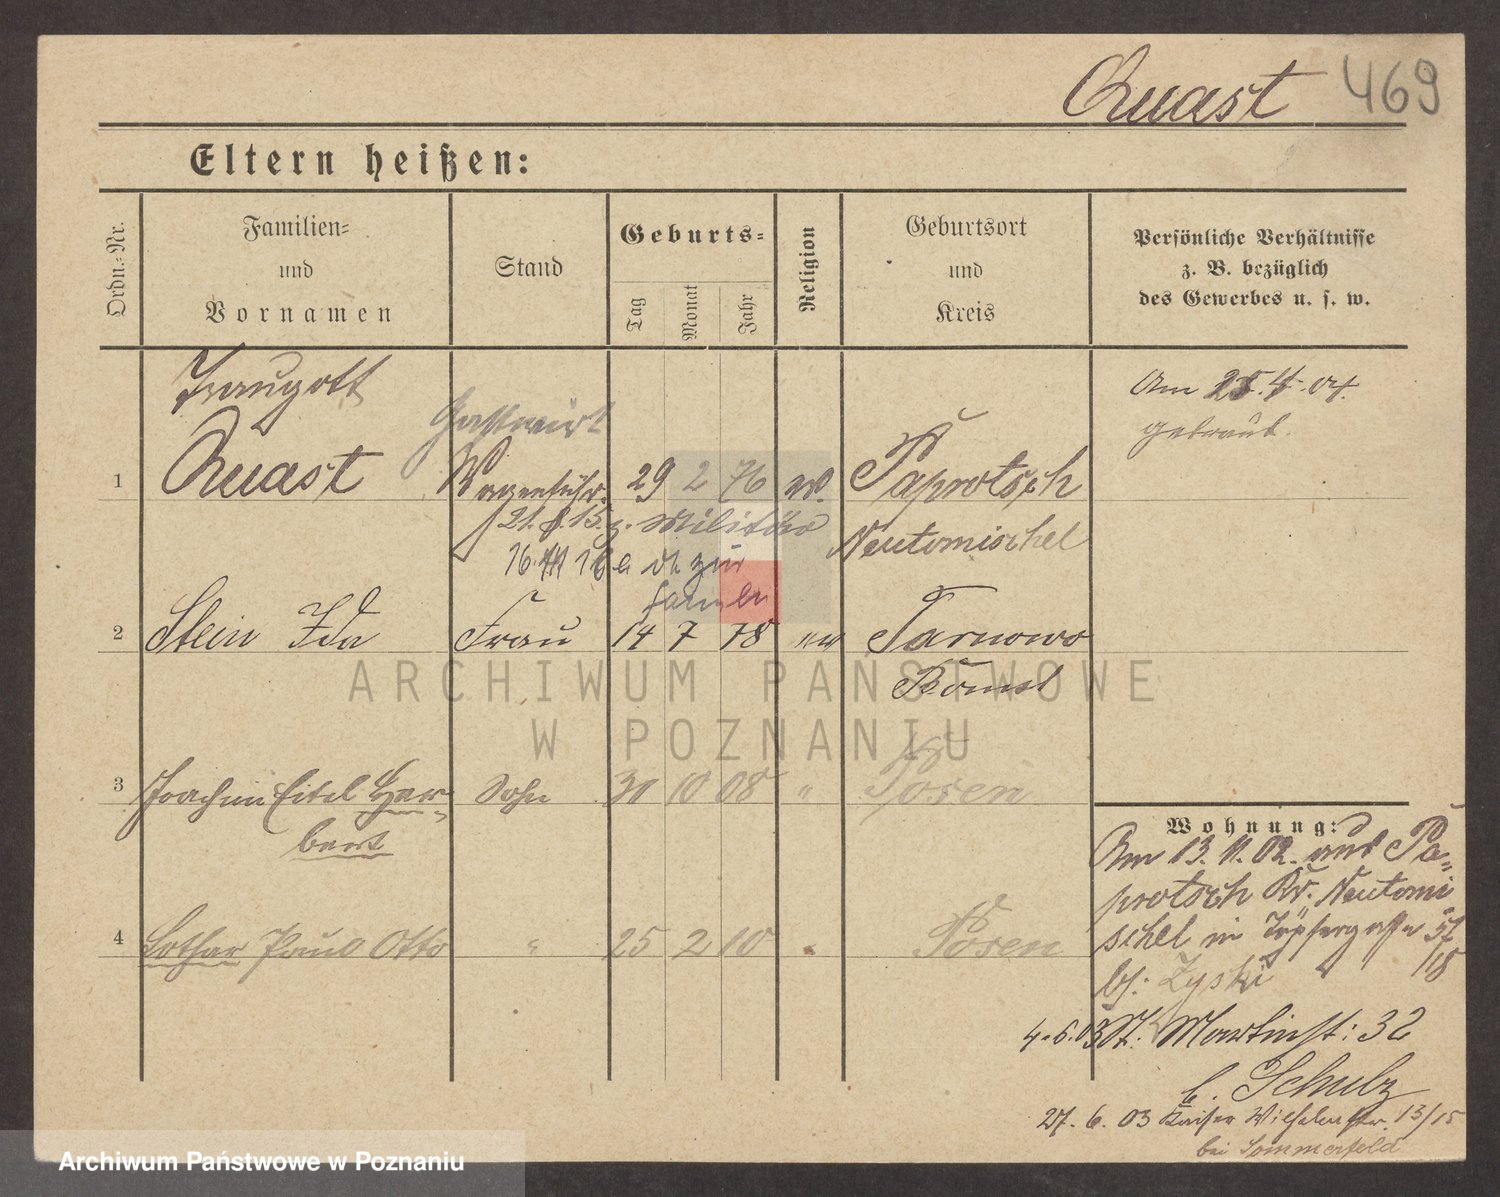 Quast 469
Eltern heißen:
Ordn.-Nr.
Familien-
und
Vornamen
Stand
Geburts-
Tag
Monat
Jahr
Religion
Geburtsort
und
Kreis
Persönliche Verhältnisse
z. B. bezüglich
des Gewerbes u. s. w.
Traugott
Gastwirt
Am 25.4.04.
getraut.
1 Quast Wagenführ. 29 2 76 Paprotsch
21. 8. 15. z. Militär Neutomischel
16. 16 zur
2 Stein Ida Frau 14 7 78 Tarnowo
Bomst
ARCHIWUM PAŃSTWOWE
W POZNANIU
3 Joachim Eitel Her- Sohn 30 10 08 " Posen
bert
Wohnung:
Am 13. 11. 02. aus Pa-
protsch Kr. Neutomi
4 Lothar Paul Otto " 25 2 10 Posen
schel in Töpfergasse
bei: Zyski
4.6.03 St. Martinst: 32
b. Schulz
27. 6. 03 Kaiser Wilhelmstr. 13/15
bei Sommerfeld
Archiwum Państwowe w Poznaniu